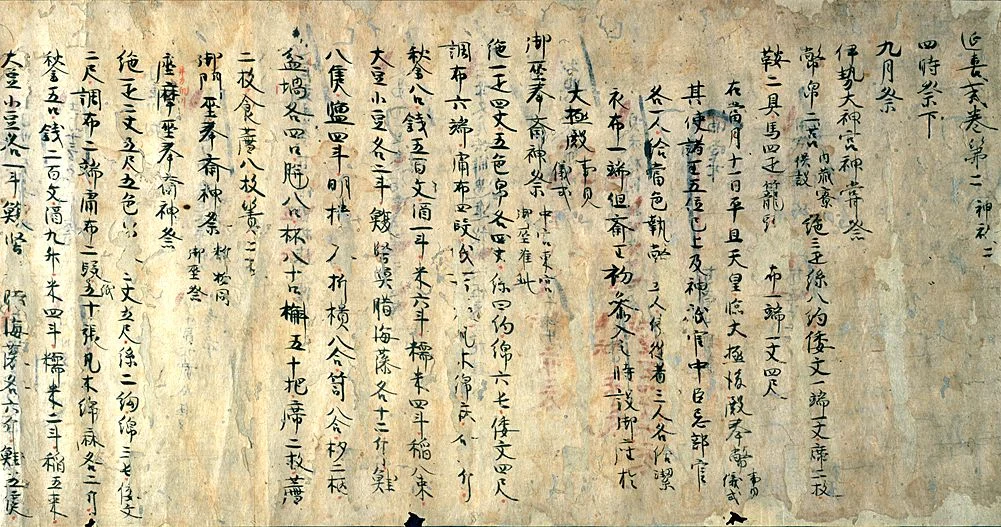 延喜式巻第二 神祇二
四時祭下
九月祭
伊勢大神宮神甞祭
幣帛二筥 内蔵寮供設 絁三疋絲八絇倭文一端一丈席二枚
鞍二具馬四疋籠頭 布一端一丈四尺
在當月十一日平旦天皇臨大極後殿奉幣 儀式
其使諸王五位已上及神祇官中臣忌部官
各一人給當色執幣 五人使従者三人各給潔
衣布一端但齋王初参入之時設御座於
大極殿 儀式
御巫奉齋神祭 中宮東宮御巫准此
絁一疋四丈五色帛各四丈絲四絇綿六屯倭文四尺
調布六端庸布四段 凡木綿麻各 斤
秋金八口銭五百文酒一斗米六斗糯米四斗稲八束
大豆小豆各二斗鰒堅魚腊海藻各十二斤鮭
八隻鹽四斗明 折横八合筥八合杓二柄
盆堝各四口 八口杯八十口槲五十把席二枚薦
二枚食薦八枚簀二
御門巫奉齋神祭 御巫祭
座摩巫奉齋神祭
絁一疋二丈五尺五色帛 二丈五尺絲二絇綿三屯倭文
二尺調布二端庸布二段紙五十張凡木綿麻各二斤
秋金五口銭二百文酒九升米四斗糯米二斗稲五束
大豆小豆各一斗鰒堅 腊海藻各六斤鮭五隻